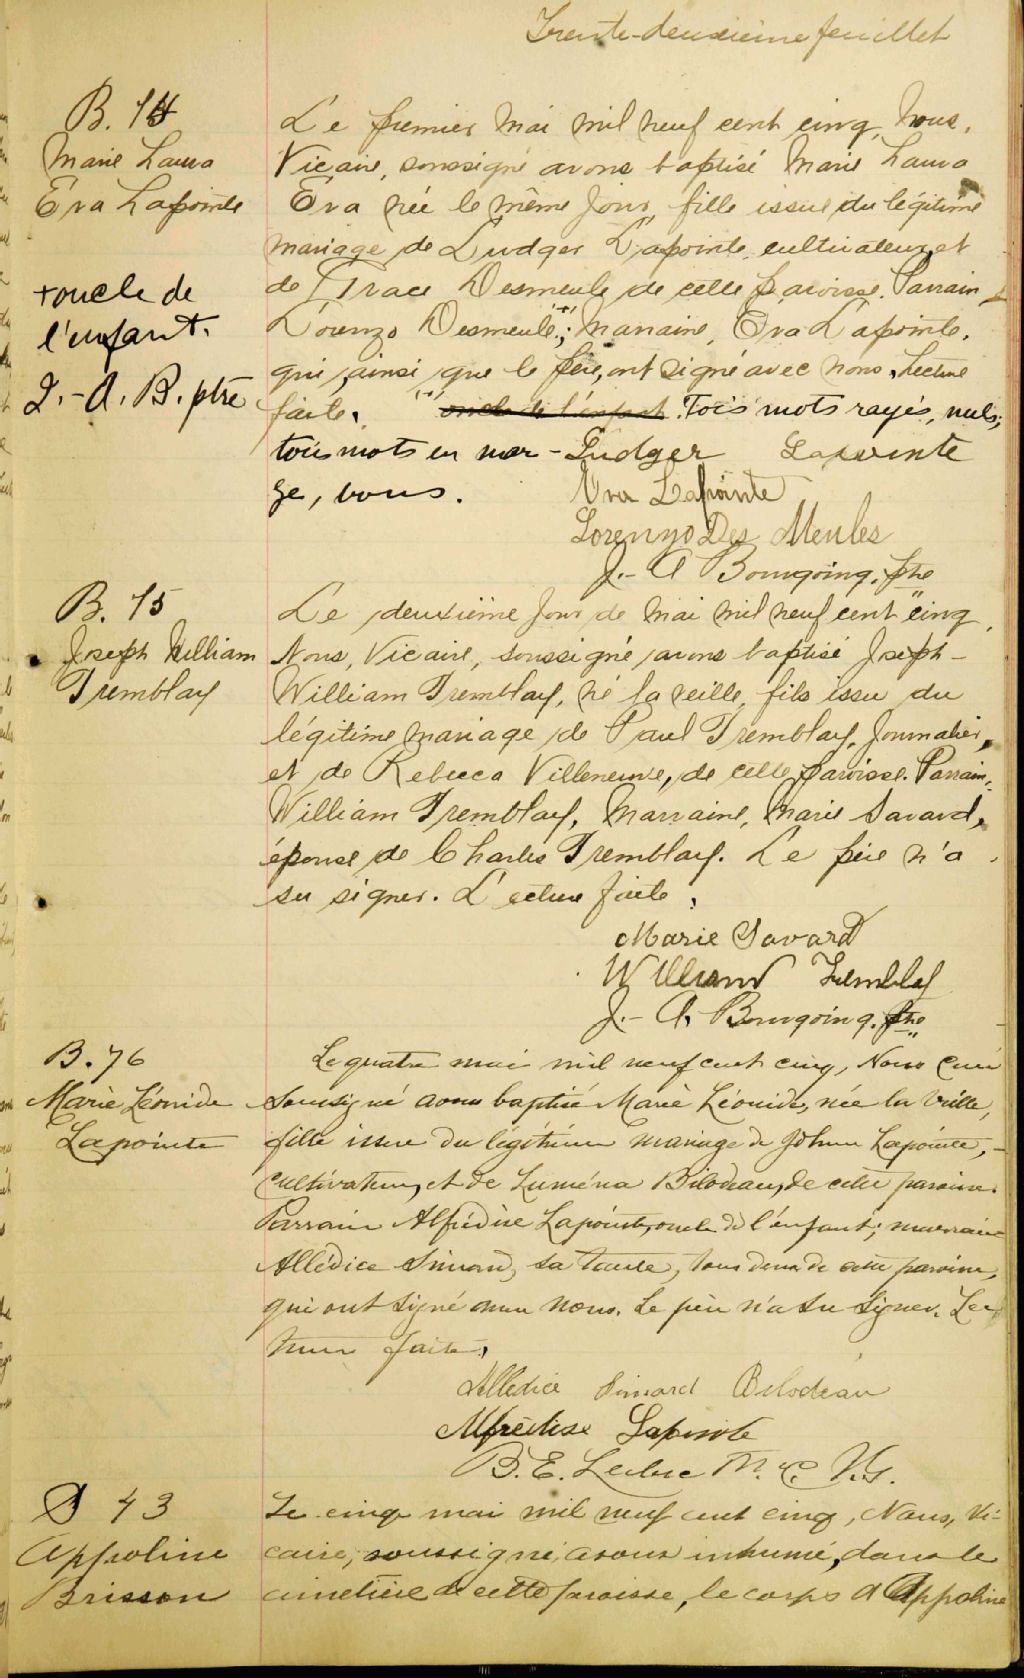 Trente-deuxième feuillet
B. 74
Marie Laura
Éva Lapointe
+oncle de
l'enfant.
J.-A. B. ptre
Le premier mai mil neuf cent cinq, Nous,
Vicaire, soussigné avons baptisé Marie Laura
Eva née le même jour, fille issue du légitime
mariage de Ludger Lapointe, cultivateur, et
de Grace Desmeule de cette paroisse. Parrain
Lorenzo Desmeule,+; Marraine, Eva Lapointe,
qui, ainsi que le père, ont signé avec nous. Lecture
faite. oncle de l'enfant. Tois mots rayés, nuls;
tois mots en mar-
ge, bons.
Ludger Lapointe
Eva Lapointe
Lorenzo Des Meules
J.-A Bourgoing, ptre
B. 75
Joseph William
Tremblay
Le deuxième jour de mai mil neuf cent cinq,
Nous, Vicaire, soussigné, avons baptisé Joseph-
William Tremblay, né la veille, fils issu du
légitime mariage de Paul Tremblay, journalier,
et de Rebecca Villeneuve, de cette paroisse. Parrain,
William Tremblay, Marraine, Marie Savard,
épouse de Charles Tremblay. Le père n'a
su signer. Lecture faite.
Marie Savard
William Tremblay
J.-A. Bourgoing, ptre
B. 76
Marie Léonide
Lapointe
Le quatre mai mil neuf cent cinq, Nous Curé
soussigné avons baptisé Marie Léonide, née la veille,
fille issue du légitime mariage de Johnn Lapointe,
cultivateur, et de Luména Bilodeau, de cette paroisse.
Parrain Alfrédise Lapointe, oncle de l'enfant; marraine
Allédice Simard, sa tante, tous deux de cette paroisse,
qui ont signé avec nous. Le père n'a su signer. Lec
ture faite.
Allédice Simard Bilodeau
Alfrédise Lapointe
B. E. Leclerc V.G.
S 43
Appoline
Brisson
Le cinq mai mil neuf cent cinq, Nous, Vi-
caire, soussigné, avons inhumé, dans le
cimetière de cette paroisse, le corps d'Appoline